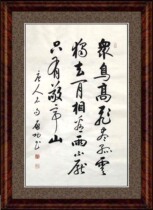 眾鳥高飛盡孤雲
獨去閒相看兩不厭
只有敬亭山
唐人